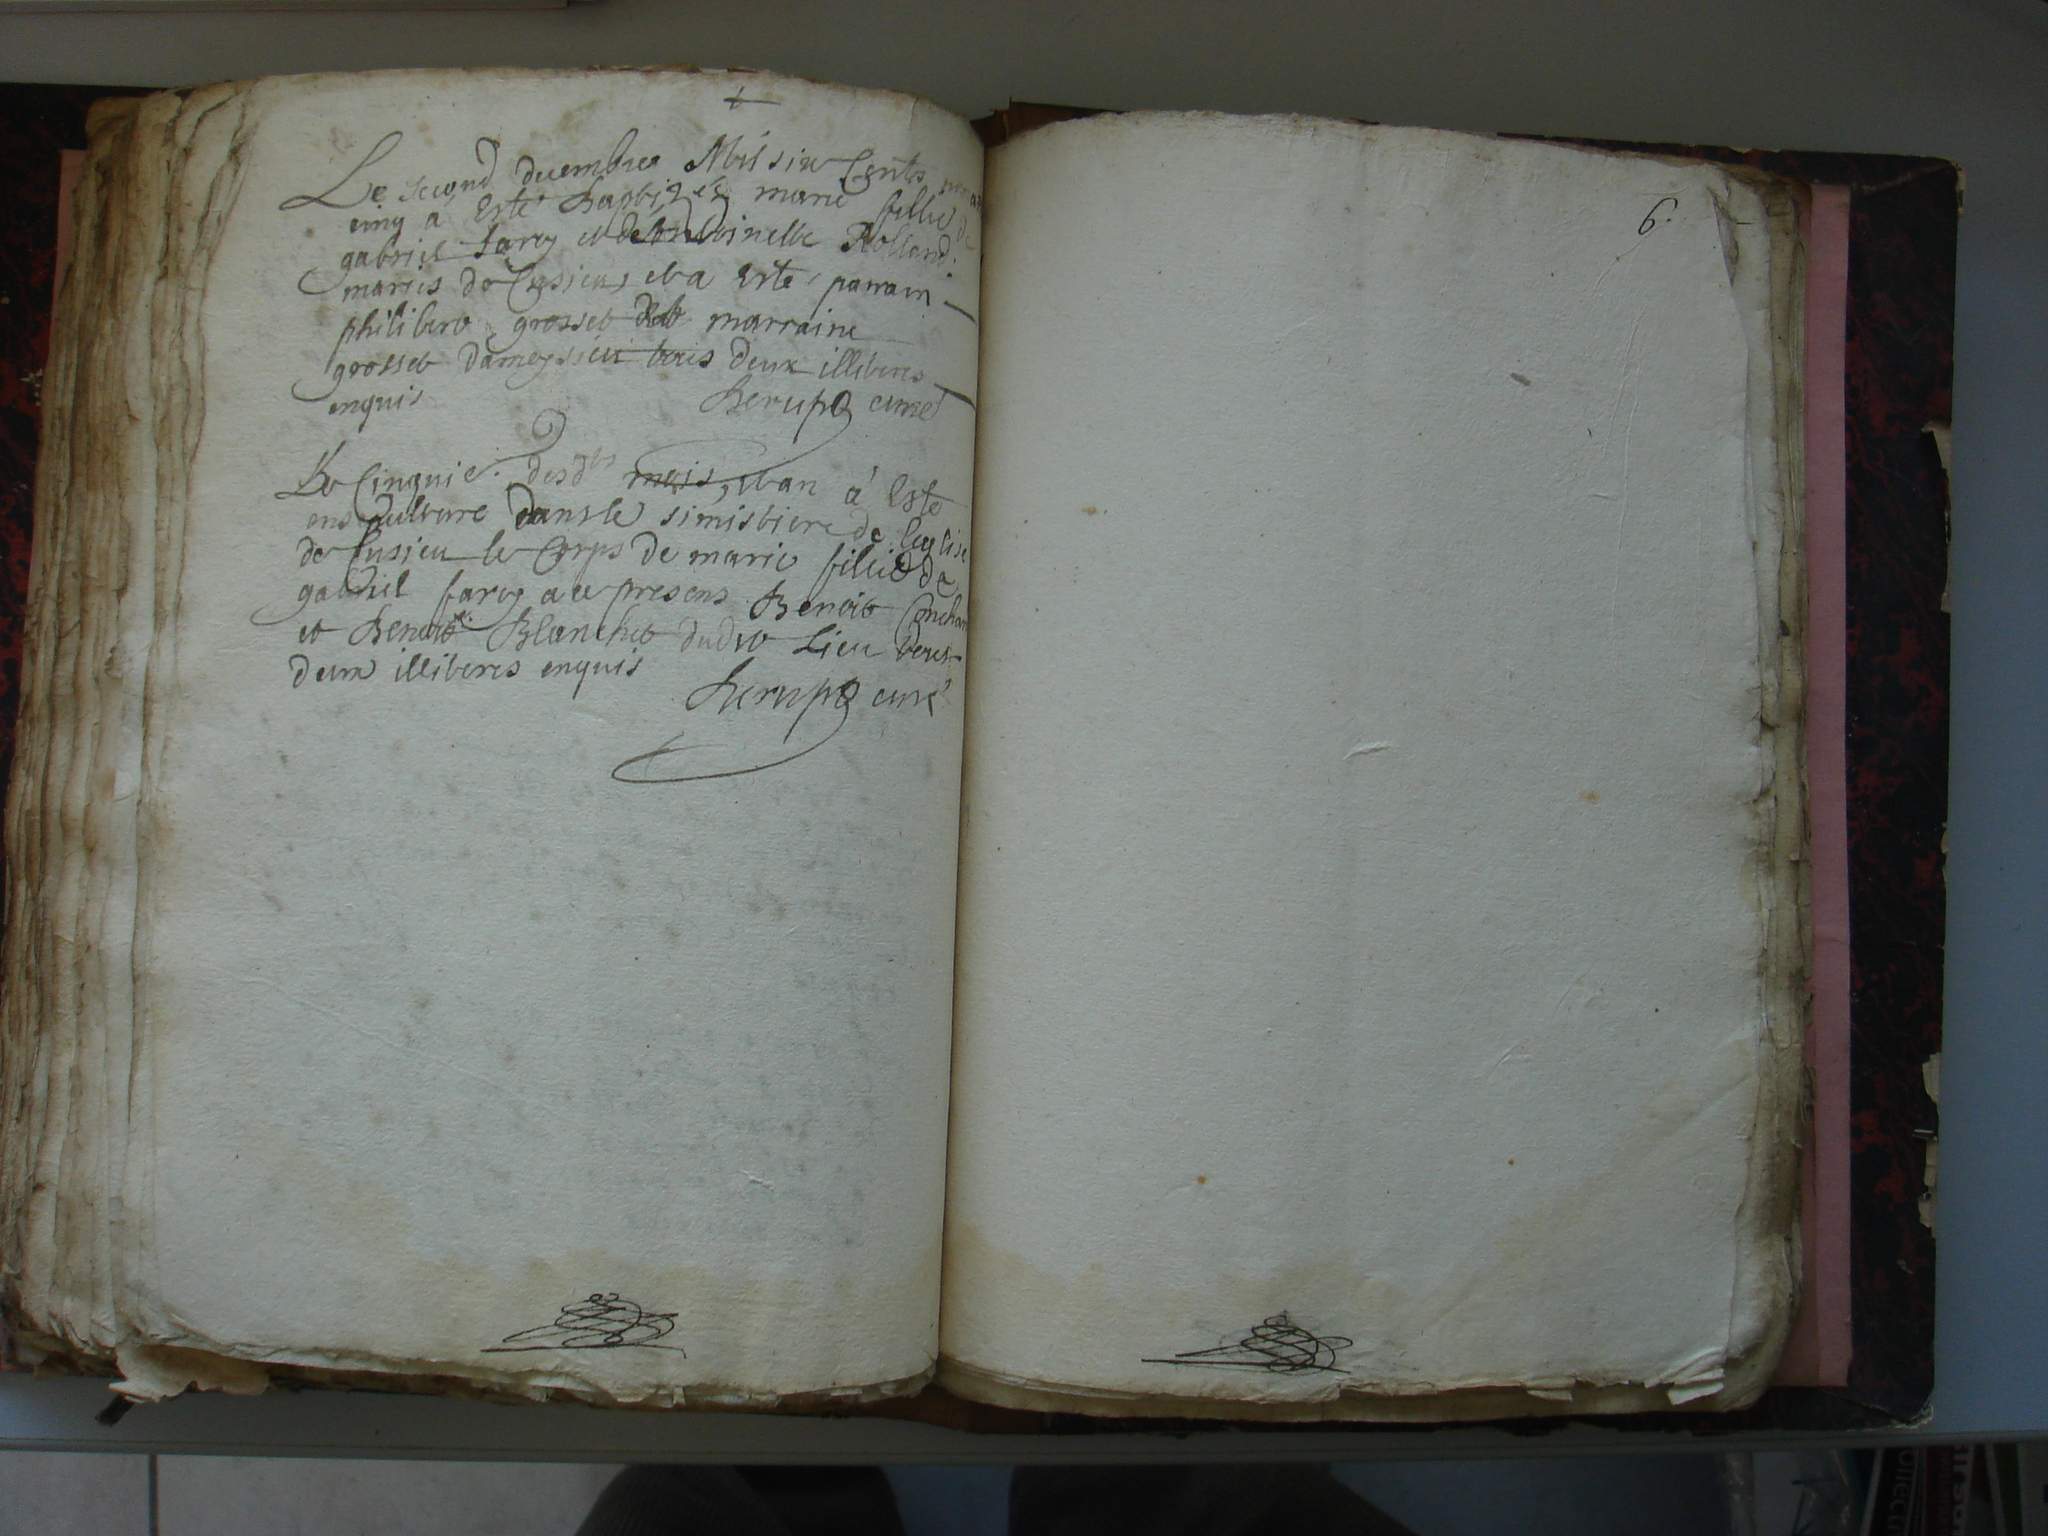 Le second decembre Mil six Cents
cinq a Esté Baptizée marie fillie de
gabriel farcy et de Antoinette Rolland
mariés de Cusieu, et a Esté parrain
philibert grosset et marraine
grosset damoysieu touts deux illiteres
enquis Berupo curé
Le Cinquie. desdts mois, et an à Esté
ensepulture dans le simistiere de leglise
de Cusieu le Corps de marie fillie de
gabriel farcy a ce presens Benoit
et Benoit Blanchet dudit Lieu touts
deux illiteres enquis
Berupo curé
6.